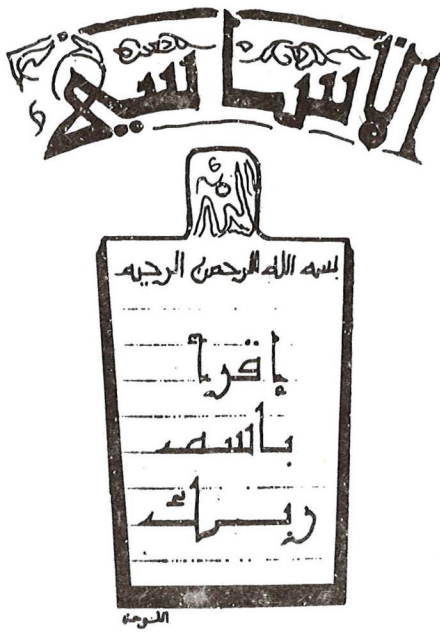 الأساسي
بسم الله الرحمن الرحيم
إقرأ
باسم
ربك
اللوحة